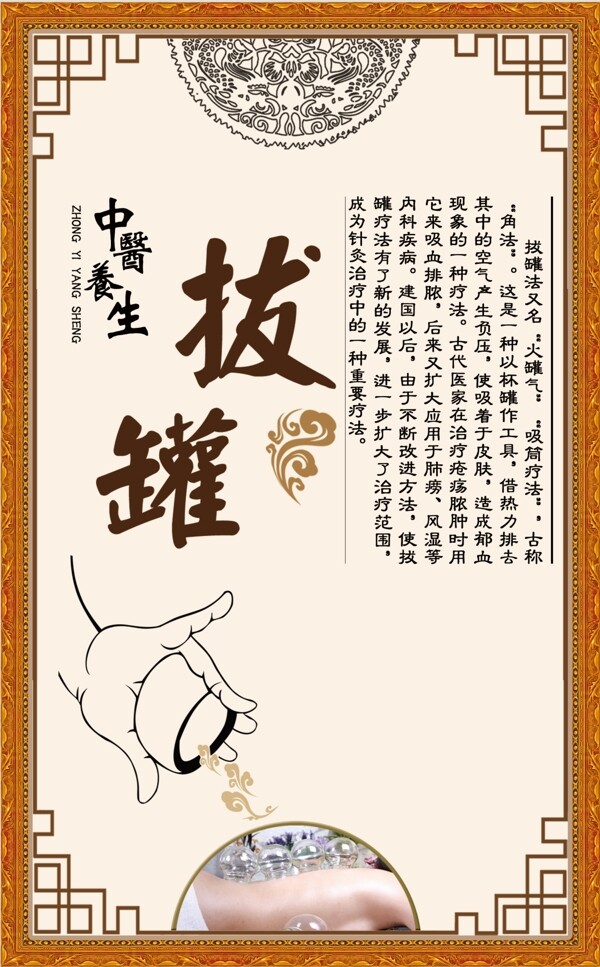 拔罐法又名“火罐气”“吸筒疗法”，古称
“角法”。这是一种以杯罐作工具，借热力排去
其中的空气产生负压，使吸着于皮肤，造成郁血
现象的一种疗法。古代医家在治疗疮疡脓肿时用
它来吸血排脓，后来又扩大应用于肺痨、风湿等
内科疾病。建国以后，由于不断改进方法，使拔
罐疗法有了新的发展，进一步扩大了治疗范围，
成为针灸治疗中的一种重要疗法。
拔罐
中醫養生
ZHONG YI YANG SHENG